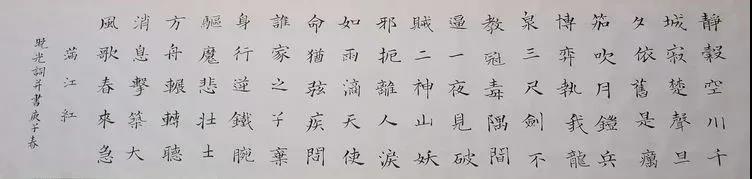 靜穀空川千
城寂楚聲旦
夕依舊是癘
笳吹月鎧兵
博弈執我龍
泉三尺劍不
教冠毒隅間
逼一夜見破
賊二神山妖
邪扼離人淚
如雨滴天使
命猶弦疾問
誰家之子棄
身行逆鐵腕
驅魔悲壯士
方舟輾轉聽
消息擊築大
風歌春來急
滿江紅
曉光詞并書庚子春